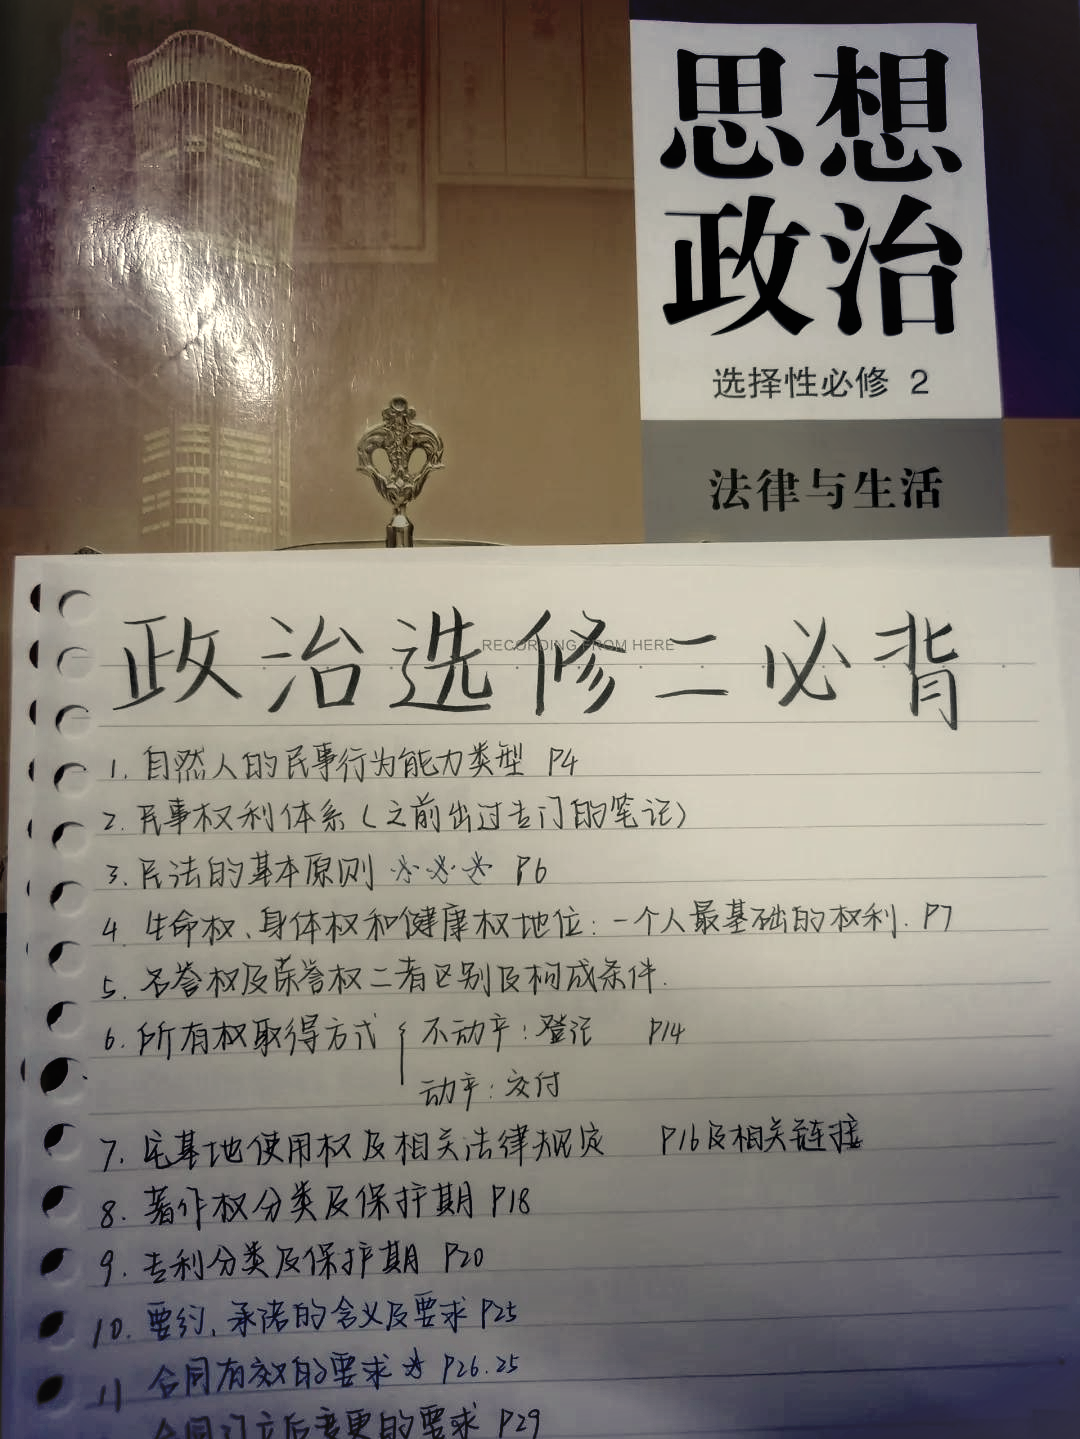 思想
政治
选择性必修 2
法律与生活
政治选修二必背
RECORDING FROM HERE
1. 自然人的民事行为能力类型 P4
2. 民事权利体系(之前出过专门的笔记)
3. 民法的基本原则 ☆☆☆ P6
4. 生命权、身体权和健康权地位:一个人最基础的权利. P7
5. 名誉权及荣誉权二者区别及构成条件.
6. 所有权取得方式 { 不动产:登记 P14
动产:交付
7. 宅基地使用权及相关法律规定 P16及相关链接
8. 著作权分类及保护期 P18
9. 专利分类及保护期 P20
10. 要约、承诺的含义及要求 P25
11 合同有效的要求 ☆ P26.25
合同订立后变更的要求 P29